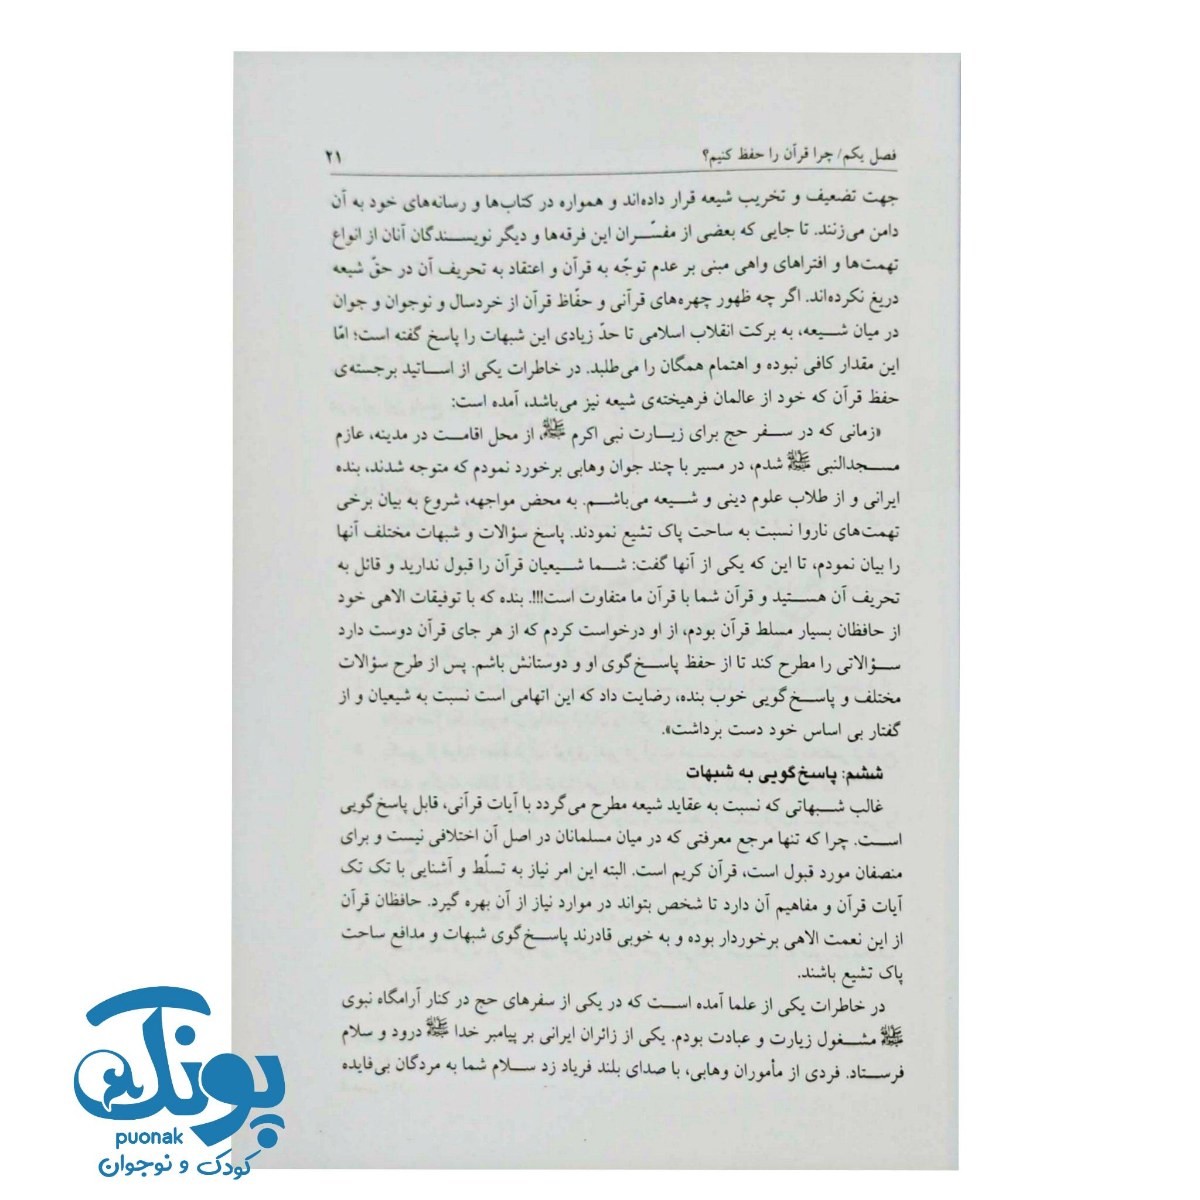 فصل یکم/ چرا قرآن را حفظ کنیم؟ ۲۱
جهت تضعیف و تخریب شیعه قرار داده‌اند و همواره در کتاب‌ها و رسانه‌های خود به آن
دامن می‌زنند. تا جایی که بعضی از مفسّران این فرقه‌ها و دیگر نویسندگان آنان از انواع
تهمت‌ها و افتراهای واهی مبنی بر عدم توجّه به قرآن و اعتقاد به تحریف آن در حقّ شیعه
دریغ نکرده‌اند. اگر چه ظهور چهره‌های قرآنی و حفّاظ قرآن از خردسال و نوجوان و جوان
در میان شیعه، به برکت انقلاب اسلامی تا حدّ زیادی این شبهات را پاسخ گفته است؛ امّا
این مقدار کافی نبوده و اهتمام همگان را می‌طلبد. در خاطرات یکی از اساتید برجسته‌ی
حفظ قرآن که خود از عالمان فرهیخته‌ی شیعه نیز می‌باشد، آمده است:
«زمانی که در سفر حج برای زیارت نبی اکرم ﷺ، از محل اقامت در مدینه، عازم
مسجدالنبی ﷺ شدم، در مسیر با چند جوان وهابی برخورد نمودم که متوجه شدند، بنده
ایرانی و از طلاب علوم دینی و شیعه می‌باشم. به محض مواجهه، شروع به بیان برخی
تهمت‌های ناروا نسبت به ساحت پاک تشیع نمودند. پاسخ سؤالات و شبهات مختلف آنها
را بیان نمودم، تا این که یکی از آنها گفت: شما شیعیان قرآن را قبول ندارید و قائل به
تحریف آن هستید و قرآن شما با قرآن ما متفاوت است!!!. بنده که با توفیقات الاهی خود
از حافظان بسیار مسلط قرآن بودم، از او درخواست کردم که از هر جای قرآن دوست دارد
سؤالاتی را مطرح کند تا از حفظ پاسخ‌گوی او و دوستانش باشم. پس از طرح سؤالات
مختلف و پاسخ‌گویی خوب بنده، رضایت داد که این اتهامی است نسبت به شیعیان و از
گفتار بی اساس خود دست برداشت».
ششم: پاسخ‌گویی به شبهات
غالب شبهاتی که نسبت به عقاید شیعه مطرح می‌گردد با آیات قرآنی، قابل پاسخ‌گویی
است. چرا که تنها مرجع معرفتی که در میان مسلمانان در اصل آن اختلافی نیست و برای
منصفان مورد قبول است، قرآن کریم است. البته این امر نیاز به تسلّط و آشنایی با تک تک
آیات قرآن و مفاهیم آن دارد تا شخص بتواند در موارد نیاز از آن بهره گیرد. حافظان قرآن
از این نعمت الاهی برخوردار بوده و به خوبی قادرند پاسخ‌گوی شبهات و مدافع ساحت
پاک تشیع باشند.
در خاطرات یکی از علما آمده است که در یکی از سفرهای حج در کنار آرامگاه نبوی
ﷺ مشغول زیارت و عبادت بودم. یکی از زائران ایرانی بر پیامبر خدا ﷺ درود و سلام
فرستاد. فردی از مأموران وهابی، با صدای بلند فریاد زد سلام شما به مردگان بی‌فایده
پونک
puonak
کودک و نوجوان